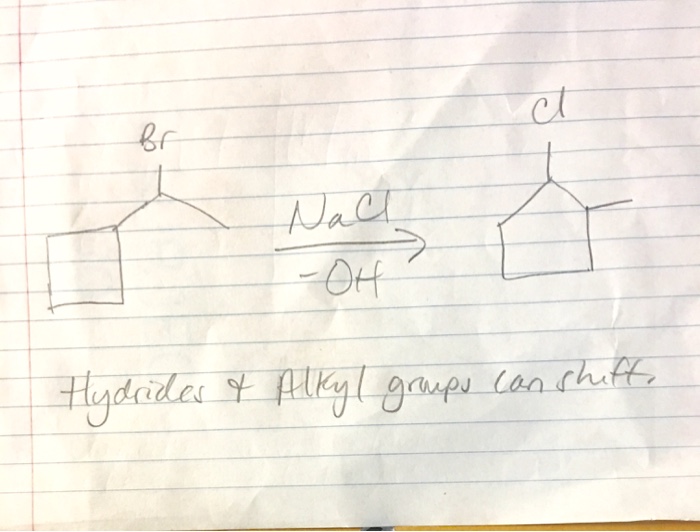 Br
Cl
NaCl
-OH
Hydrides & Alkyl groups can shift.